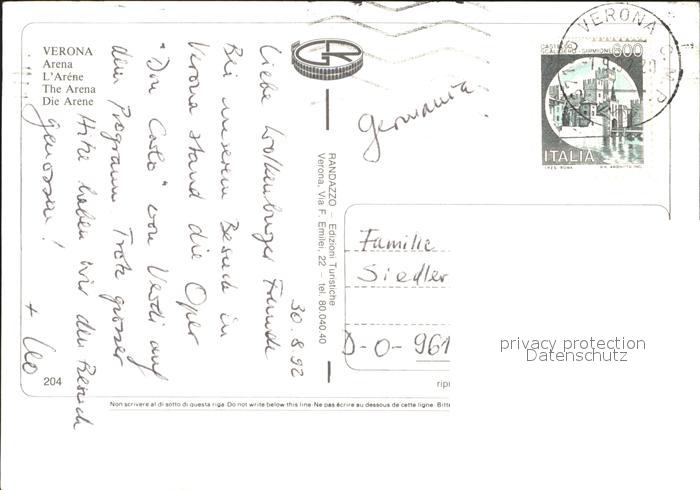 VERONA
Arena
L'Aréne
The Arena
Die Arene
30.8.92
Liebe Wolkenburger Freunde
Bei unserem Besuch in
Verona stand die Oper
"Don Carlo" von Verdi auf
dem Programm. Trotz grosser
Hitze haben wir den Besuch
genossen!
+ Leo
204
RANDAZZO – Edizioni Turistiche
Verona, Via F. Emilei, 22 – tel. 80.040.40
Germania
VERONA C.M.P.
CASTELLO
SCALIGERO - SIRMIONE
600
ITALIA
I.P.Z.S. ROMA
Familie
Siedler
D-O-961
ripr
Non scrivere al di sotto di questa riga. Do not write below this line. Ne pas écrire au dessous de cette ligne. Bitte
privacy protection
Datenschutz